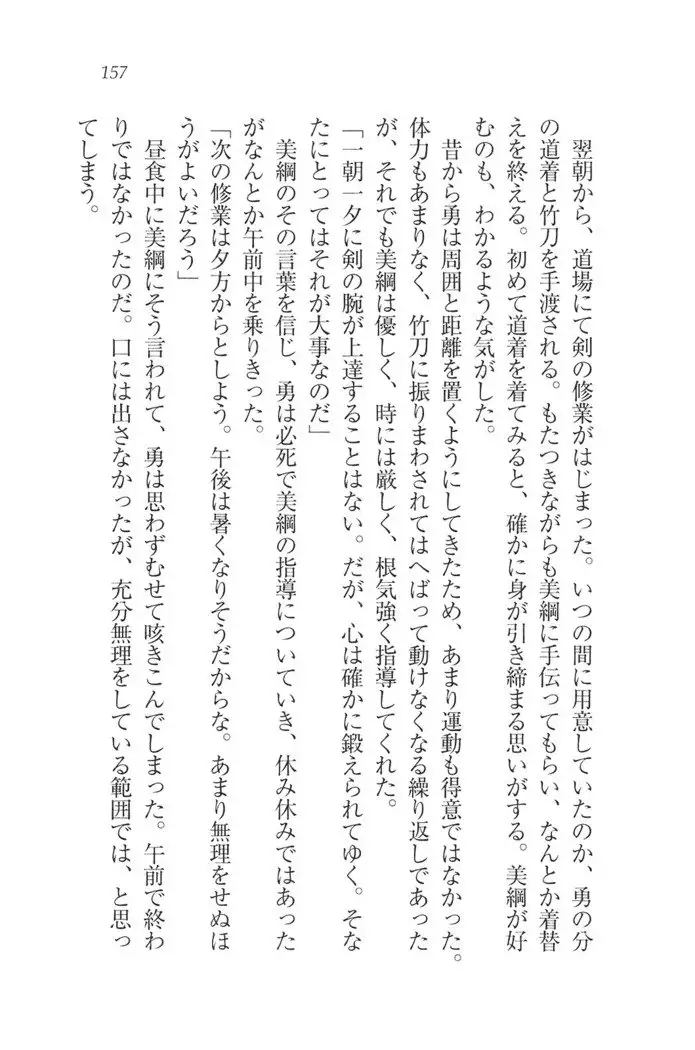 157
翌朝から、道場にて剣の修業がはじまった。いつの間に用意していたのか、勇の分
の道着と竹刀を手渡される。もたつきながらも美綱に手伝ってもらい、なんとか着替
えを終える。初めて道着を着てみると、確かに身が引き締まる思いがする。美綱が好
むのも、わかるような気がした。
昔から勇は周囲と距離を置くようにしてきたため、あまり運動も得意ではなかった。
体力もあまりなく、竹刀に振りまわされてはへばって動けなくなる繰り返しであった
が、それでも美綱は優しく、時には厳しく、根気強く指導してくれた。
「一朝一夕に剣の腕が上達することはない。だが、心は確かに鍛えられてゆく。そな
たにとってはそれが大事なのだ」
美綱のその言葉を信じ、勇は必死で美綱の指導についていき、休み休みではあった
がなんとか午前中を乗りきった。
「次の修業は夕方からとしよう。午後は暑くなりそうだからな。あまり無理をせぬほ
うがよいだろう」
昼食中に美綱にそう言われて、勇は思わずむせて咳きこんでしまった。午前で終わ
りではなかったのだ。口には出さなかったが、充分無理をしている範囲では、と思っ
てしまう。